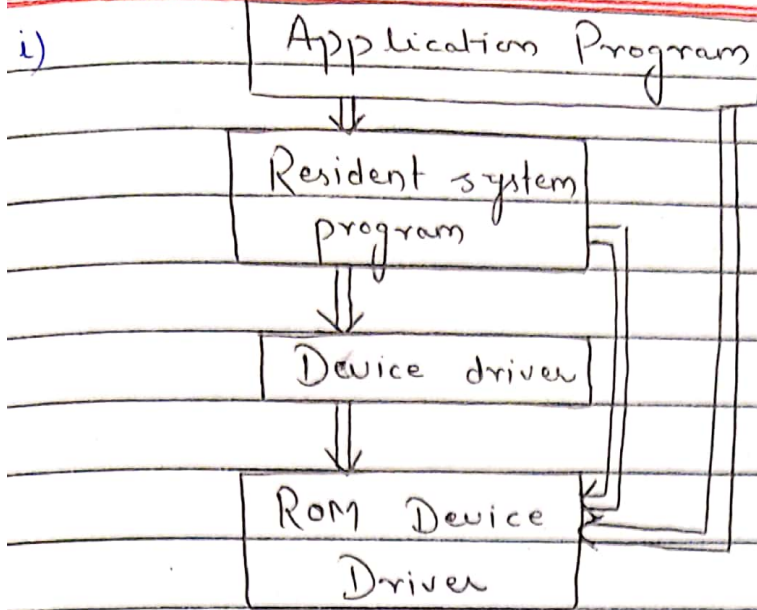 i)
Application Program
Resident system
program
Device driver
ROM Device
Driver